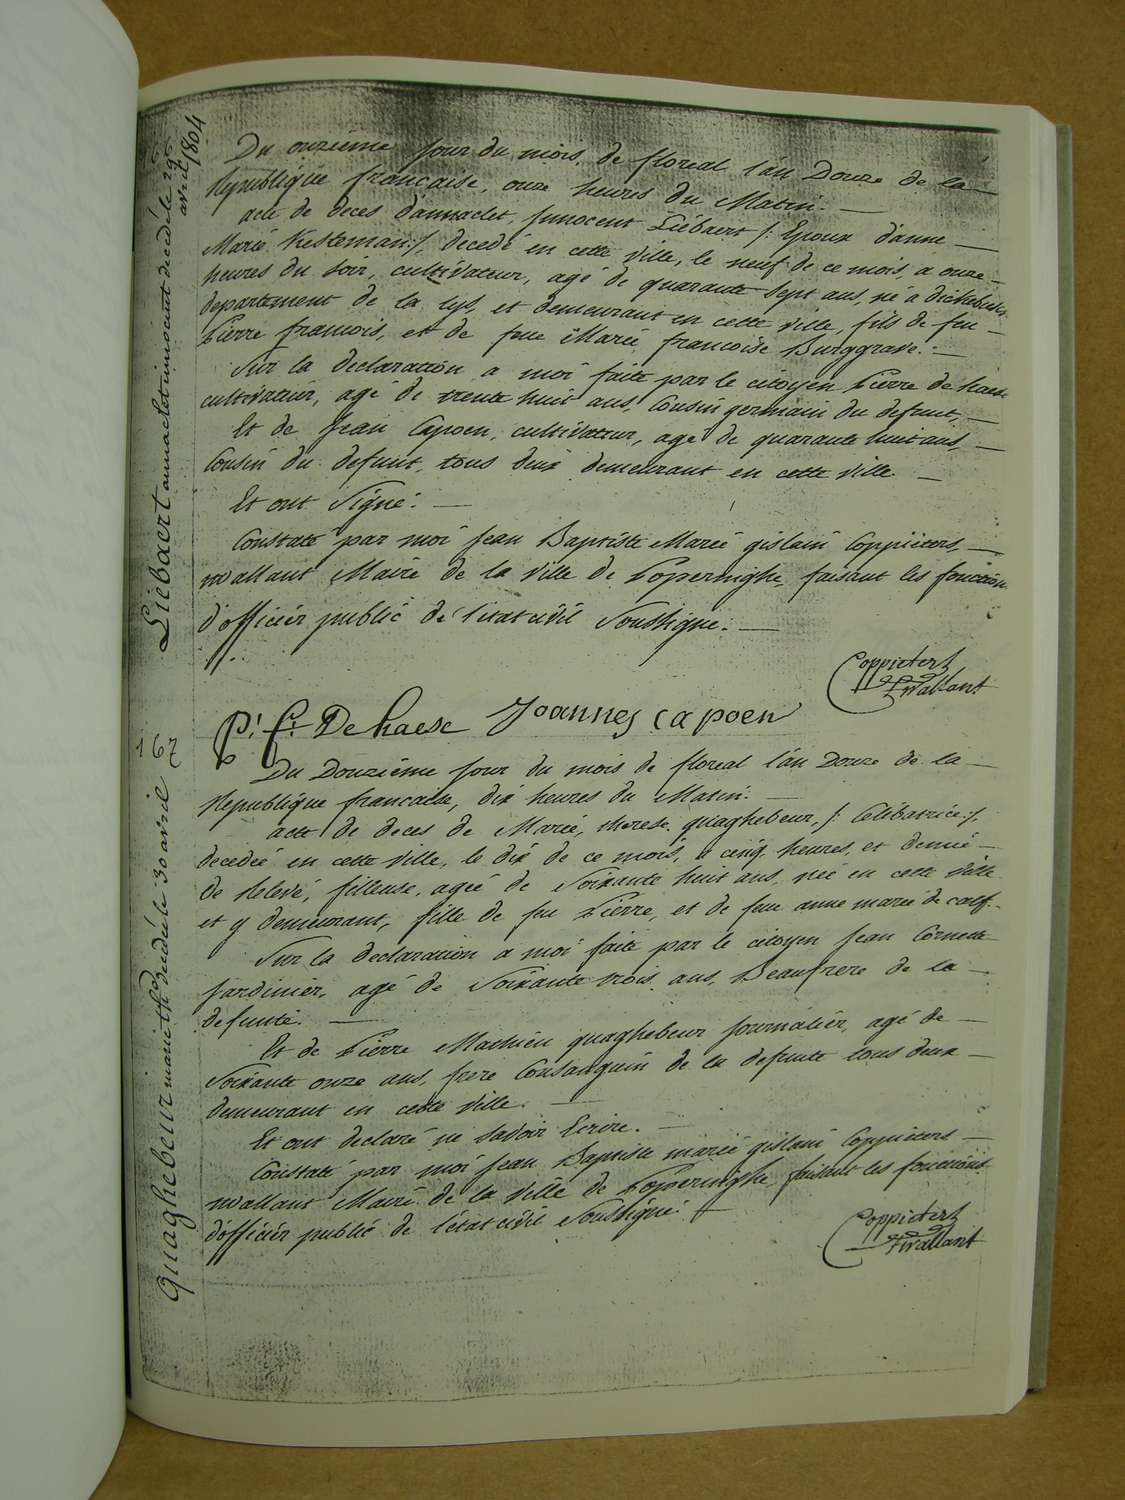 Liebaert annaclet innocent decedé le 29
avril 1804
Du onziéme jour du mois de floreal l'an Douze de la
République française, onze heures du Matin.
acte de deces d'annaclet, Jnnocent Liébaert /: Epoux d'anne
Marie Kesteman :/, decedé en cette ville, le neuf de ce mois, a onze
heures du soir, cultivateur, agé de quarante sept ans, né a dickebusch
departement de la lys, et demeurant en cette ville, fils de feu
Pierre francois, et de feue Marie francoise Burggrave.
Sur la declaration a moi faite par le citoyen Pierre de haese
cultivateur, agé de trente huit ans, Cousin germain du defunt,
Et de Jean Capoen, cultivateur, agé de quarante huit ans,
Cousin du defunt, tous deux demeurant en cette ville
Et ont Signé.
Constaté par moi Jean Baptiste Marie gislain Coppieters,
wallant Maire de la ville de Poperinghe, faisant les fonction
d'officier public de l'etat civil Soussigné.
Coppieters
Wallant
P! f! De haese Joannes Capoen
167
Quaghebeur marie th decedée le 30 avril
Du Douziéme jour du mois de floreal l'an Douze de la
République française, dix heures du Matin.
acte de deces de Marie, therese quaghebeur, /: Célibatrice :/,
decedée en cette ville, le dix de ce mois, a cinq heures et demie
de relevé, filleuse, agée de Soixante huit ans, née en cette ville
et y demeurant, fille de feu Pierre, et de feue anne marie de calf.
Sur la declaration a moi faite par le citoyen Jean Cornette
Jardinier, agé de Soixante trois ans, Beaufrere de la
defunte.
Et de Pierre Mathieu quaghebeur journalier, agé de
Soixante onze ans, frere Consanguin de la defunte tous deux
demeurant en cette ville.
Et ont declaré ne savoir Ecrire.
Constaté par moi Jean Baptiste marie gislain Coppieters
wallant Maire de la ville de Poperinghe, faisant les fonctions
d'officier public de l'état civil Soussigné.
Coppieters
Wallant